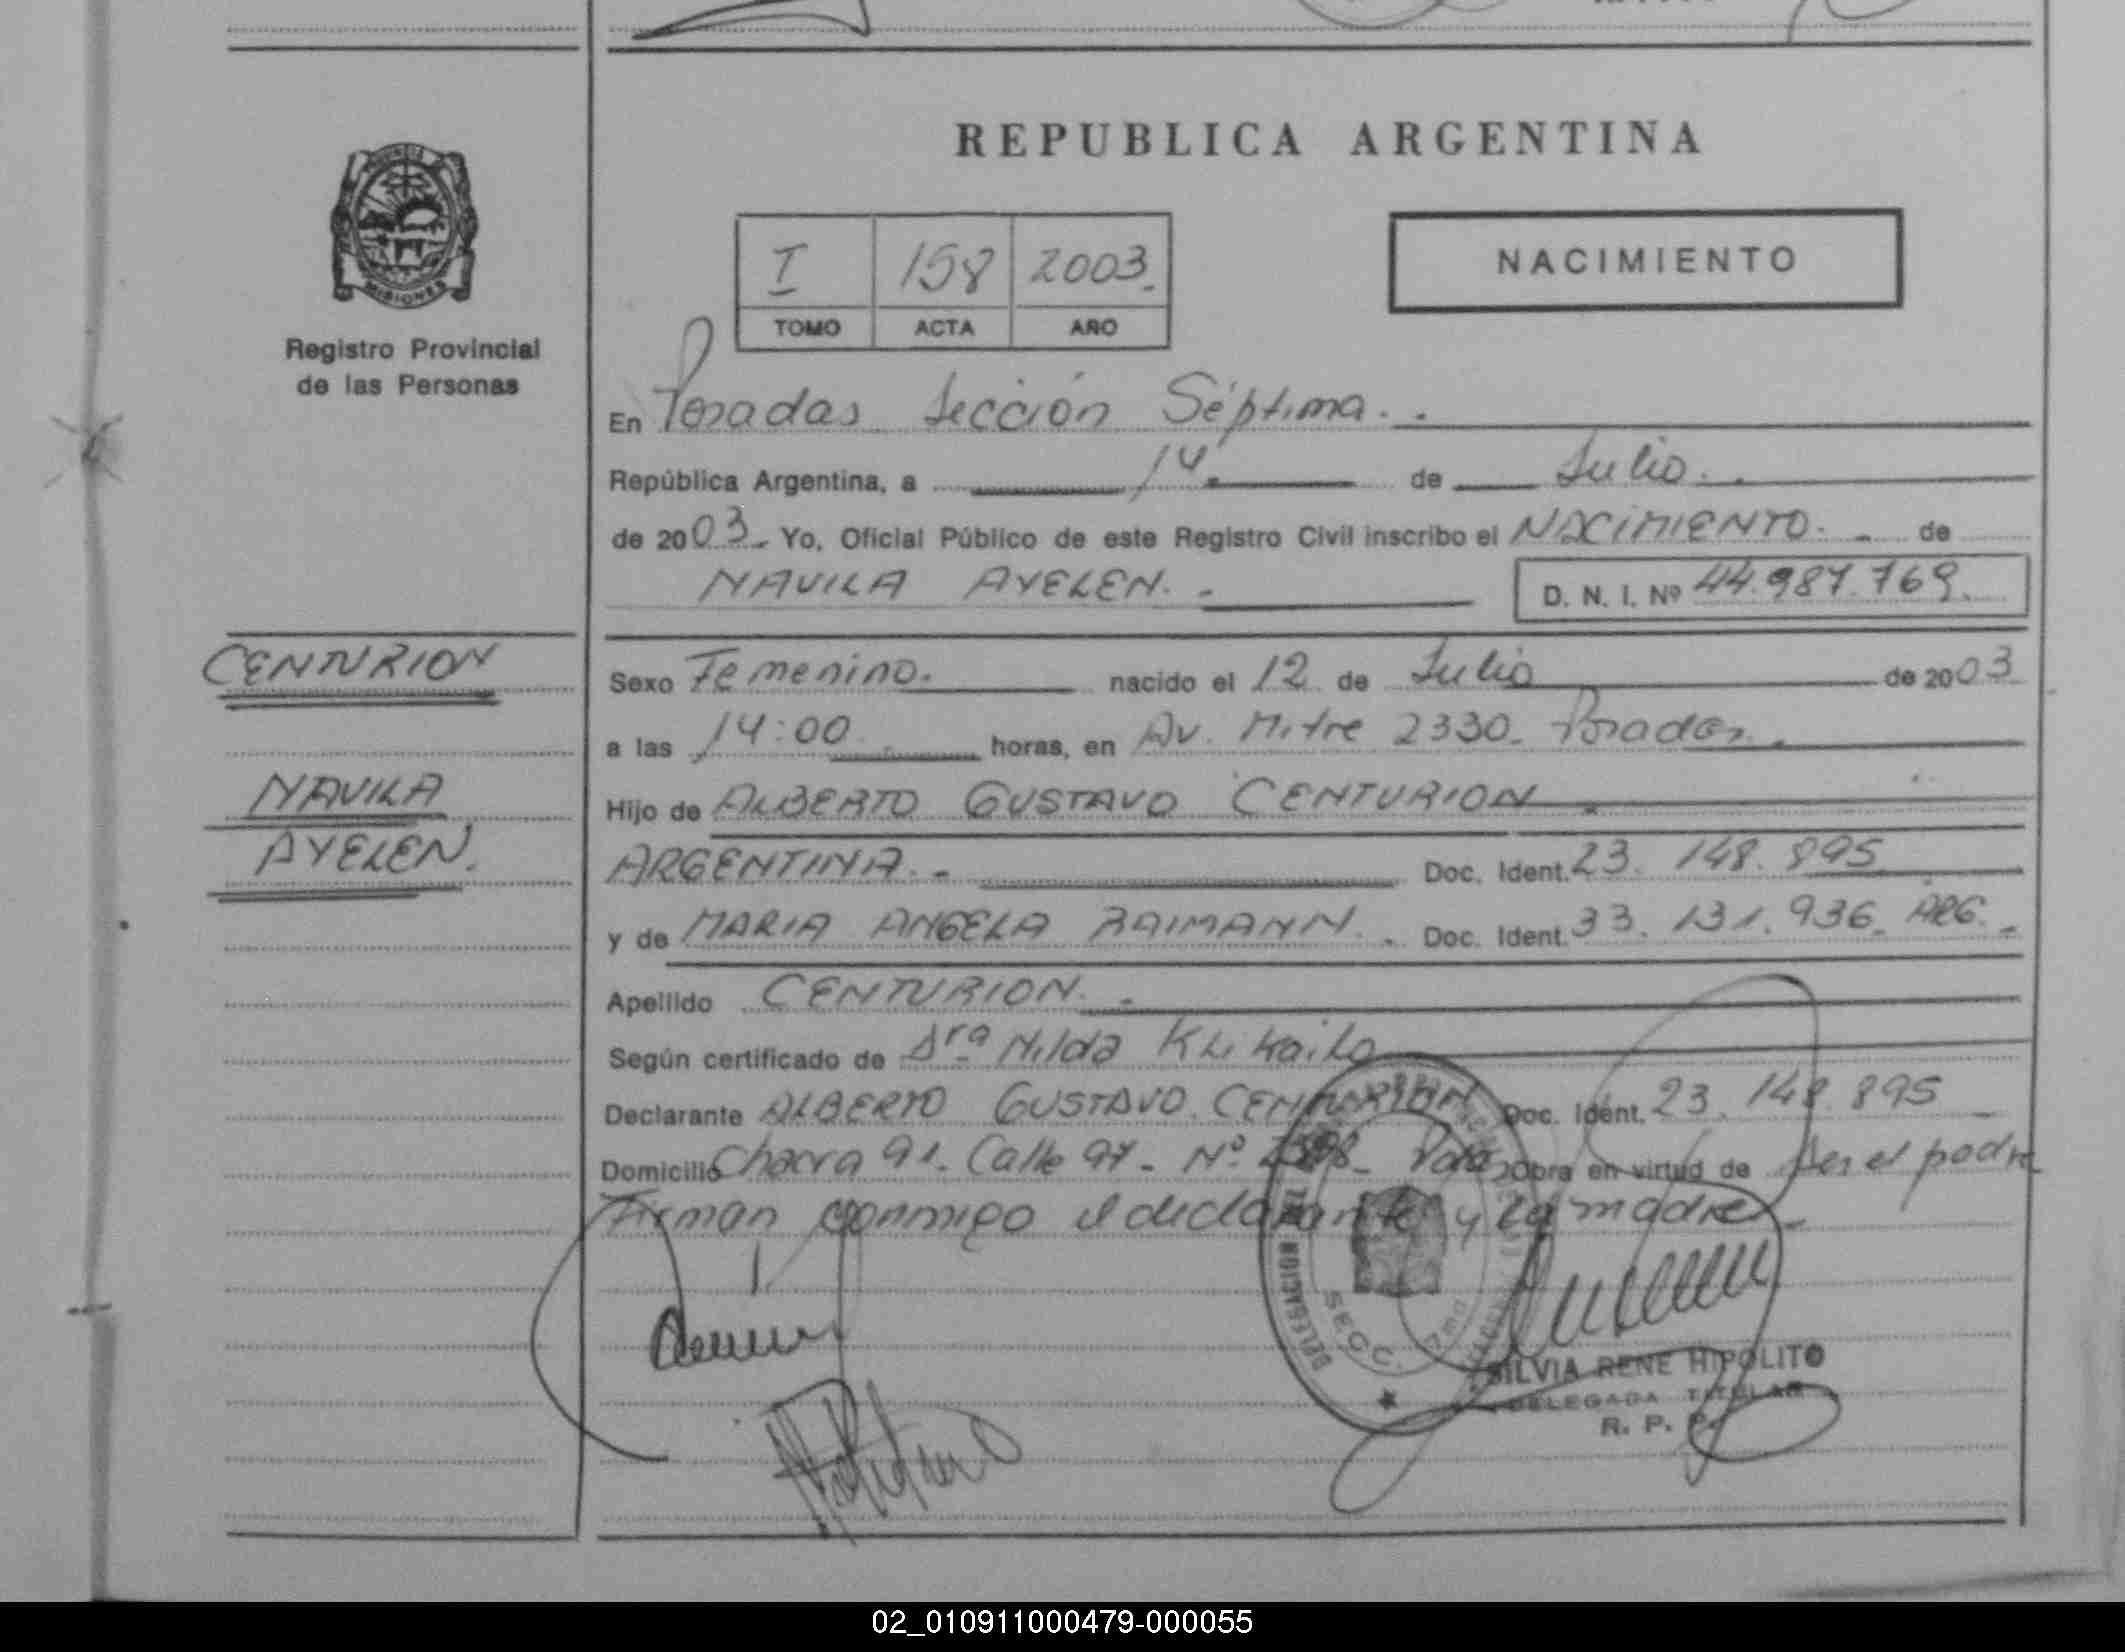 REPUBLICA ARGENTINA
PROVINCIA
MISIONES
Registro Provincial
de las Personas
I 158 2003.
TOMO ACTA AÑO
NACIMIENTO
En Posadas Sección Séptima.
República Argentina, a 14. de Julio.
de 2003. Yo, Oficial Público de este Registro Civil inscribo el NACIMIENTO. de
NAVILA AYELEN. D. N. I. Nº 44.987.769.
CENTURION
NAVILA
AYELEN.
Sexo Femenino. nacido el 12 de Julio de 2003
a las 14:00 horas, en Av. Mitre 2330. Posadas.
Hijo de ALBERTO GUSTAVO CENTURION
ARGENTINA. Doc. Ident. 23.148.895
y de MARIA ANGELA RAIMANN. Doc. Ident. 33.131.936. ARG.
Apellido CENTURION.
Según certificado de Dra Nilda
Declarante ALBERTO GUSTAVO CENTURION Doc. Ident. 23.148.895
Domicilio Chacra 91. Calle 97. Nº Obra en virtud de ser el padre
Firman conmigo el declarante y la madre.
DELEGACION
SECC.
SILVIA RENE HIPOLITO
DELEGADA TITULAR
R. P. P.
02_010911000479-000055